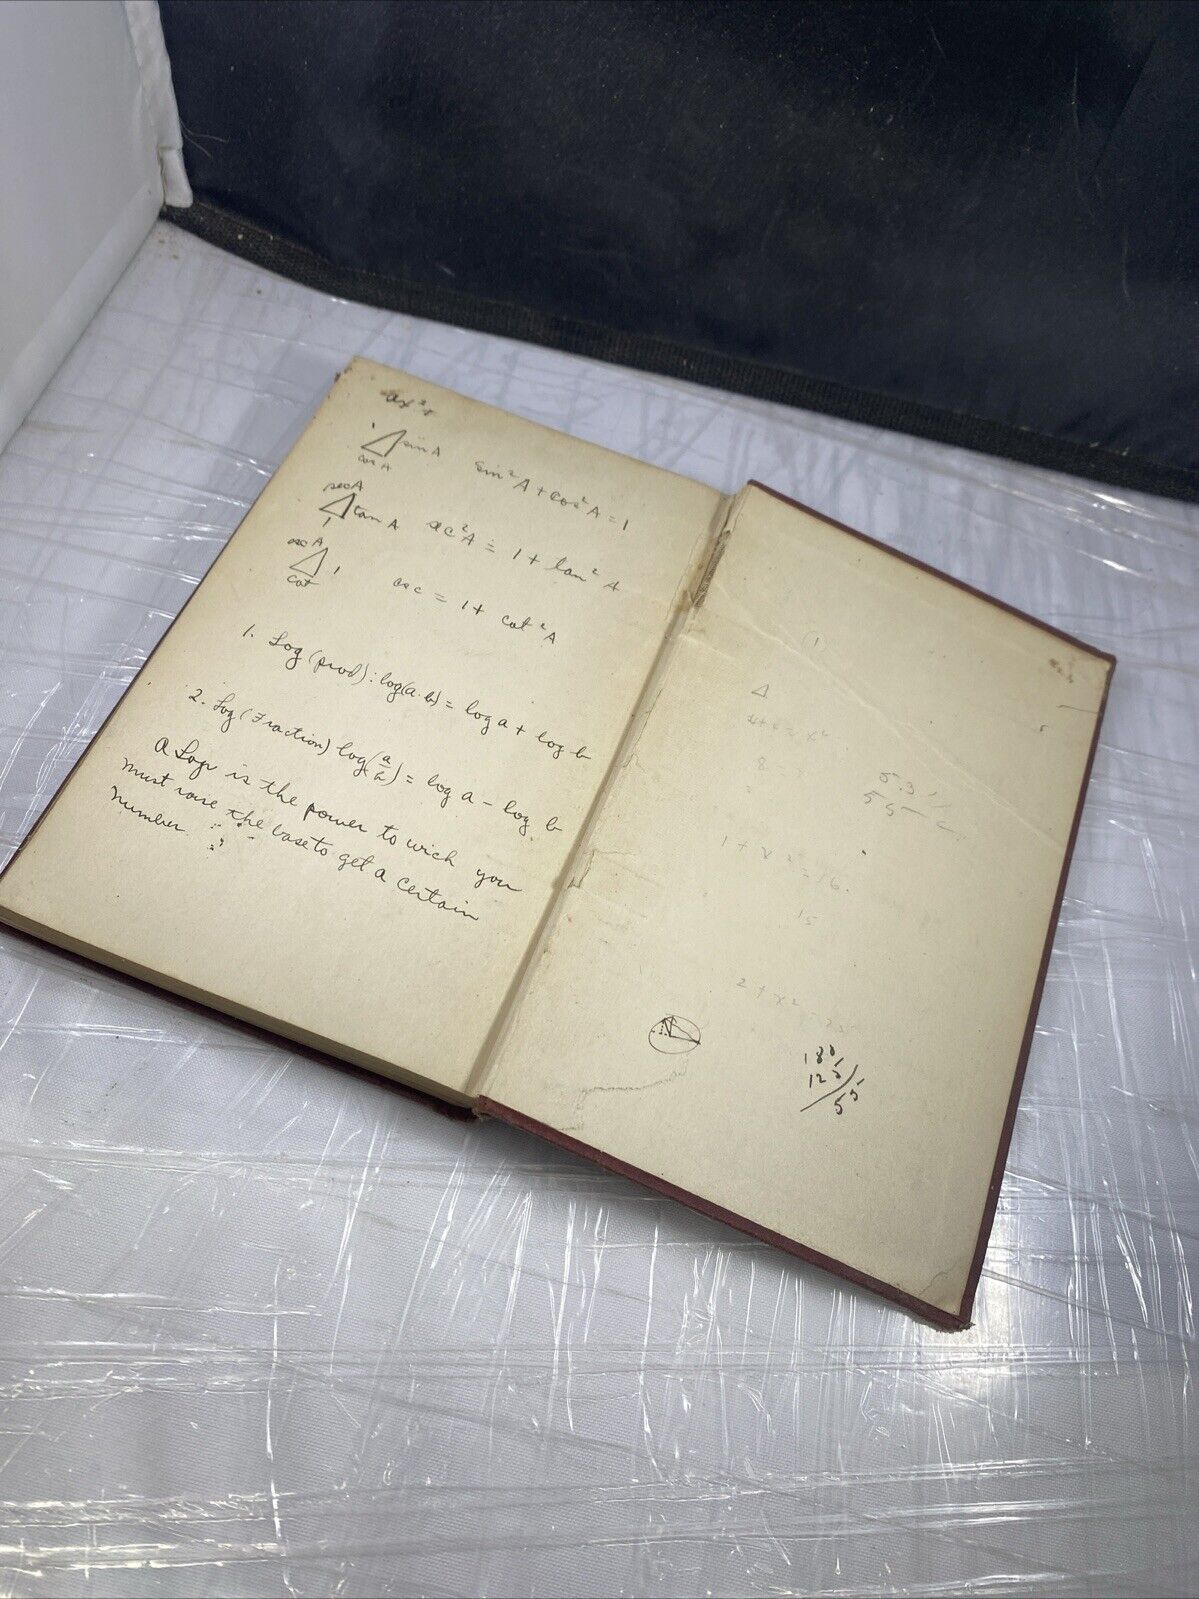 ax²+
1 sin A
cos A
sin²A + cos²A = 1
sec A
tan A
1
sec²A = 1 + tan² A
csc A
1
cot
csc = 1 + cot²A
1. Log (prod): log(a·b) = log a + log b
2. Log (Fraction) log(a/b) = log a - log b
A Log is the power to wich you
must raise the base to get a certain
number
8
5.3'
55
1 + x² = 16.
15
2 + x² = 25
180
125
55